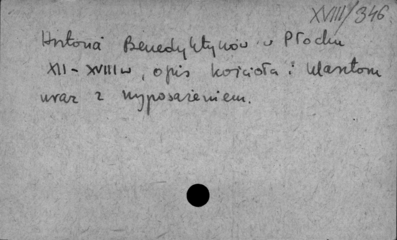 XVIII/346.
Historia Benedyktynów w Płocku
XII - XVIII w, opis kościoła i klasztoru
wraz z wyposażeniem.